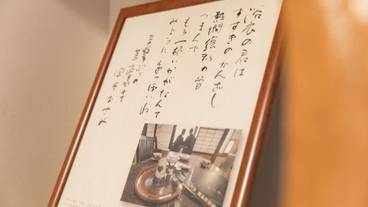 浴衣の君は
すすきのかんざし
熱燗徳利の首
つまんで
もう一杯いかがなんて
みょうに色っぽいね